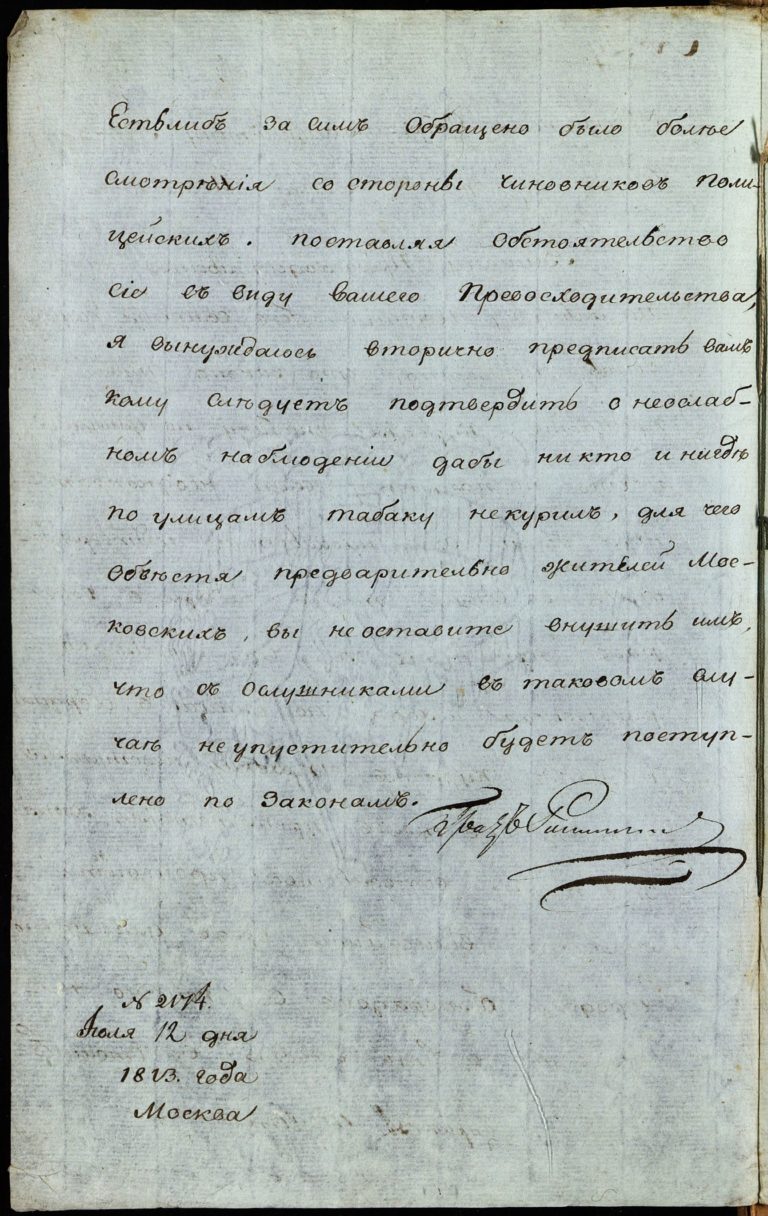 Естьлибъ за симъ обращено было болѣе
смотрѣнія со стороны чиновниковъ поли-
цейскихъ. поставляя обстоятельство
сіе въ виду вашего Превосходительства,
я вынуждаюсь вторично предписать вамъ
кому слѣдуетъ подтвердить о неослаб-
номъ наблюденіи дабы ни кто и нигдѣ
по улицамъ табаку не курилъ, для чего
объвѣстя предварительно жителей Мос-
ковскихъ, вы не оставите внушить имъ,
что съ ослушниками въ таковомъ слу-
чаѣ неупустительно будетъ поступ-
лено по законамъ.
Графъ
N 2174.
Іюля 12 дня
1813. года
Москва